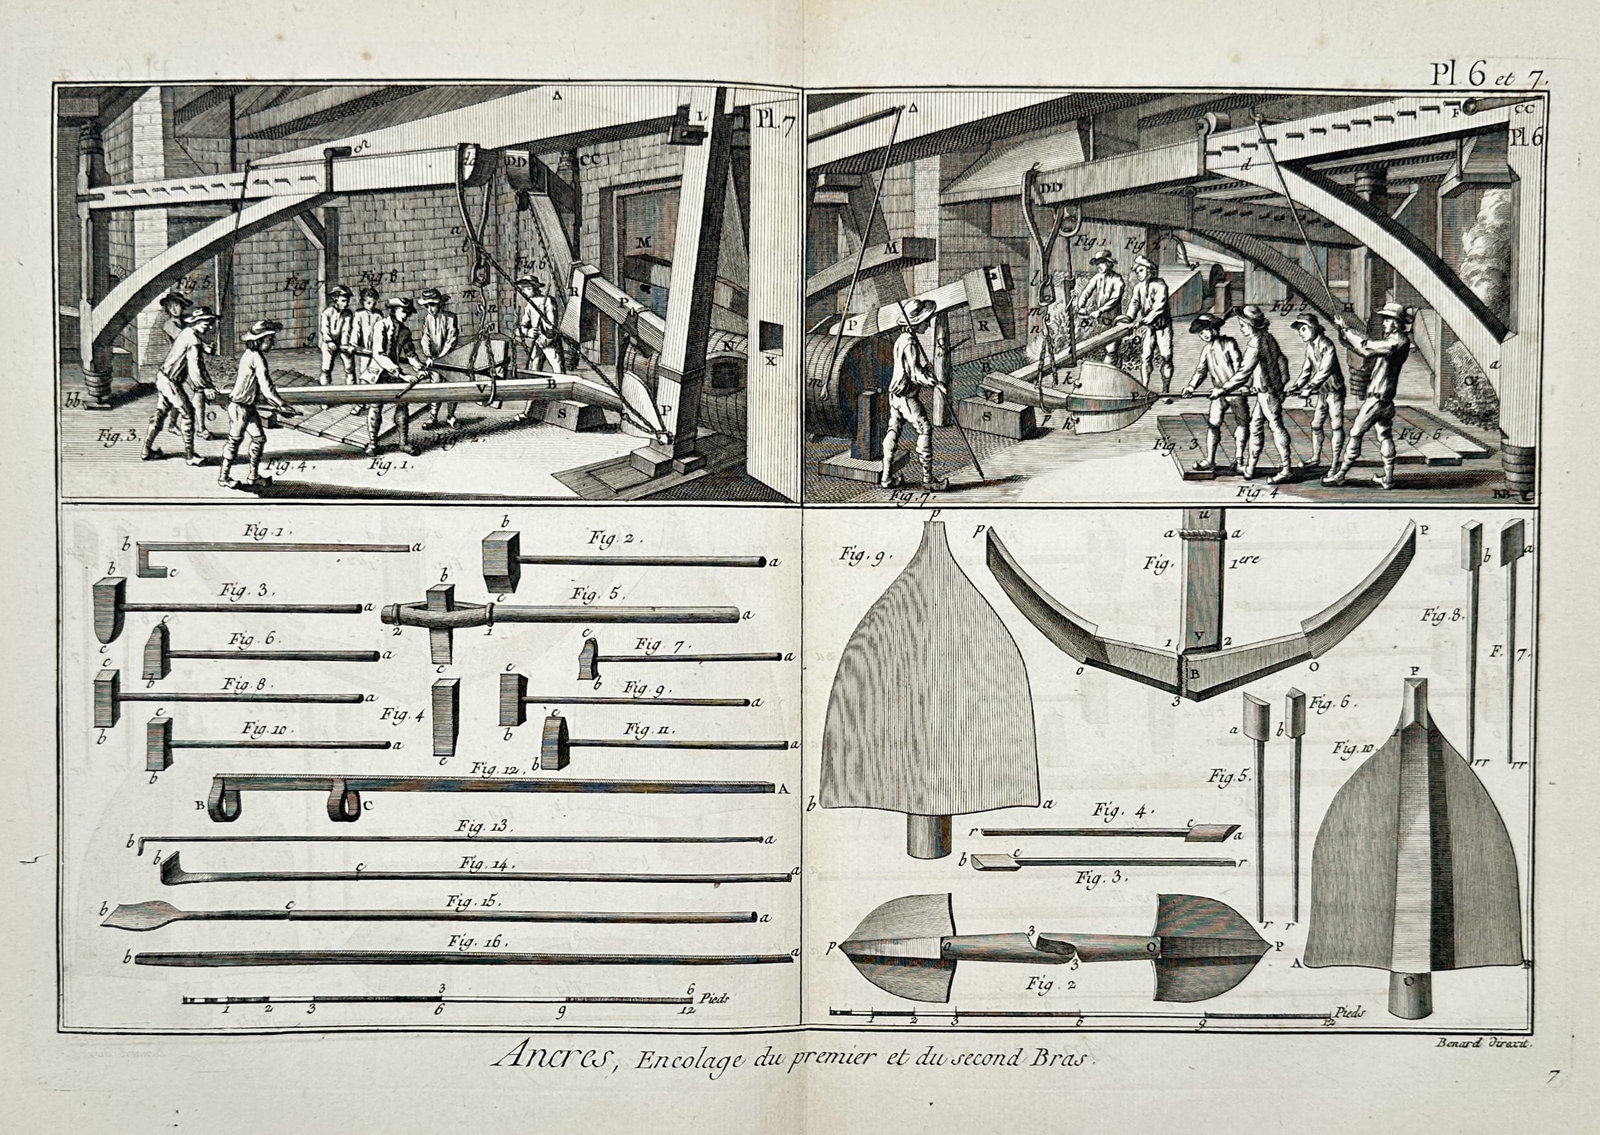 Pl. 6 et 7.
Pl. 7
Δ
L
DD
CC
M
a
l
m
n
R
P
N
X
V
B
S
P
O
bb
Fig. 5
Fig. 7
Fig. 8
Fig. 6
Fig. 3.
Fig. 4.
Fig. 1.
Fig. 2.
Pl. 6
Δ
F
CC
d
e
DD
Fig. 1.
Fig. 2.
M
l
m
n
P
R
Q
B
V
S
k
k
r
P
m
H
Fig. 5
R
a
Fig. 3
Fig. 4
Fig. 6.
Fig. 7.
BB
Fig. 1.
b a
c
Fig. 2.
b a
c
Fig. 3.
b a
c
Fig. 5.
b a
2 1
c
Fig. 6.
c a
b
Fig. 7.
c a
b
Fig. 8.
c a
b
Fig. 4
c
Fig. 9.
c a
b
Fig. 10.
c a
b
Fig. 11.
c a
b
Fig. 12.
B C A
Fig. 13.
b a
Fig. 14.
b c a
Fig. 15.
b c a
Fig. 16.
b a
3 6 Pieds
1 2 3 6 9 12
Fig. 9.
p
b a
Fig. 1ere
u
a a
p P
1 V 2
o B O
3
Fig. 8.
b
rr
F. 7.
a
rr
Fig. 5.
a
r
Fig. 6.
b
r
Fig. 10.
P
1 2
A B
O
Fig. 4.
r c a
b c r
Fig. 3.
Fig. 2
p o 3 3 O P
Pieds
1 2 3 6 9 12
Benard direxit.
Ancres, Encolage du premier et du second Bras.
7